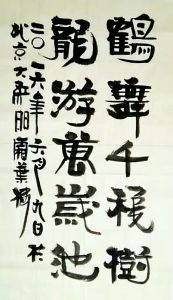 鶴舞千稔樹
龍游萬歲池
二〇一六年六月九日於
北京